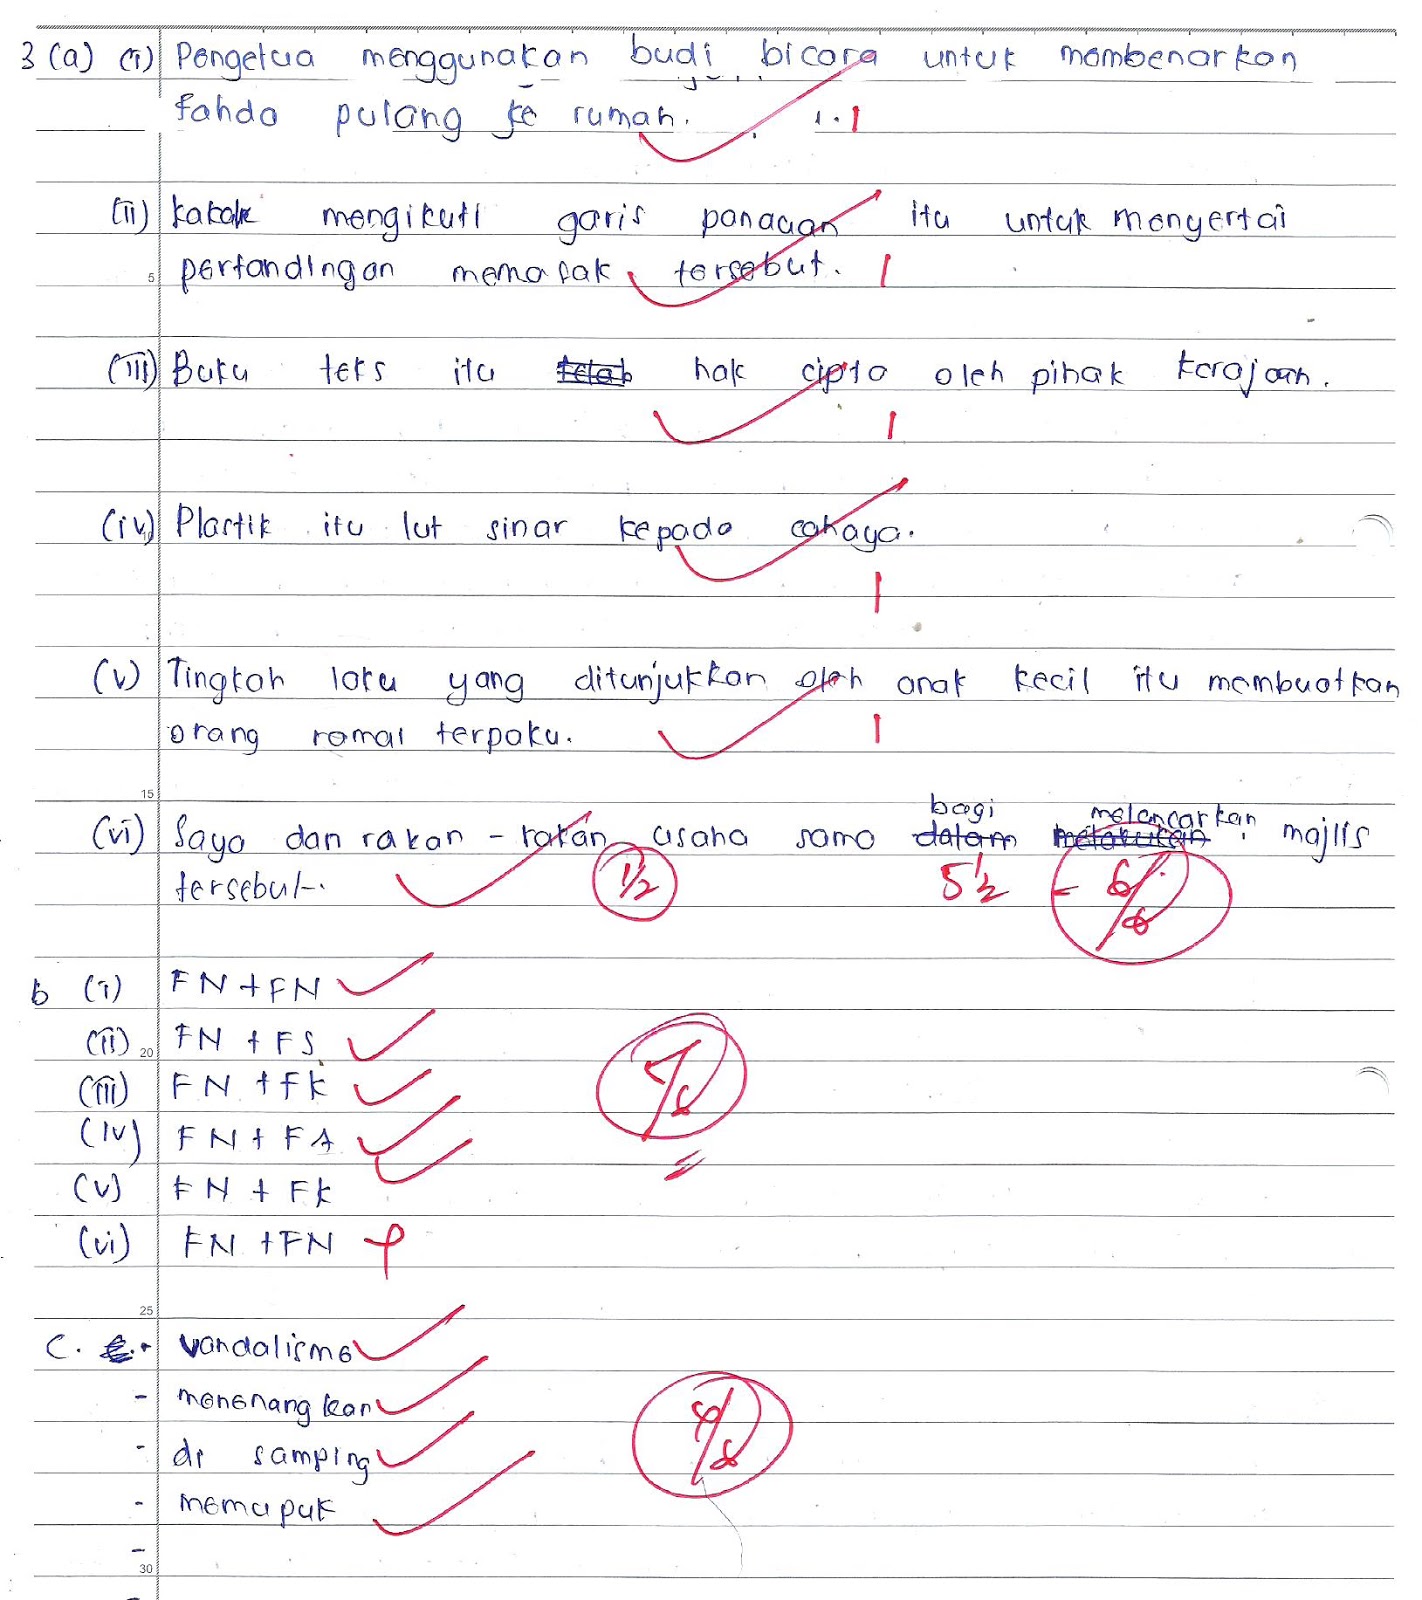 3 (a) (i) Pengetua menggunakan budi bicara untuk membenarkan
Fahda pulang ke rumah. 1
(ii) kakak mengikuti garis panduan itu untuk menyertai
5 pertandingan memasak tersebut. 1
(iii) Buku teks itu telah hak cipta oleh pihak kerajaan.
1
(iv) Plastik itu lut sinar kepada cahaya.
10
1
(v) Tingkah laku yang ditunjukkan oleh anak kecil itu membuatkan
orang ramai terpaku. 1
15
bagi melancarkan
(vi) Saya dan rakan-rakan usaha sama dalam melakukan majlis
tersebut. 1/2 5 1/2 - 6/
b (i) FN + FN
(ii) FN + FS
20
(iii) FN + FK
(iv) FN + FA
(v) FN + FK
(vi) FN + FN
25
C. - vandalisme
- menenangkan
- di samping
- memupuk
-
30